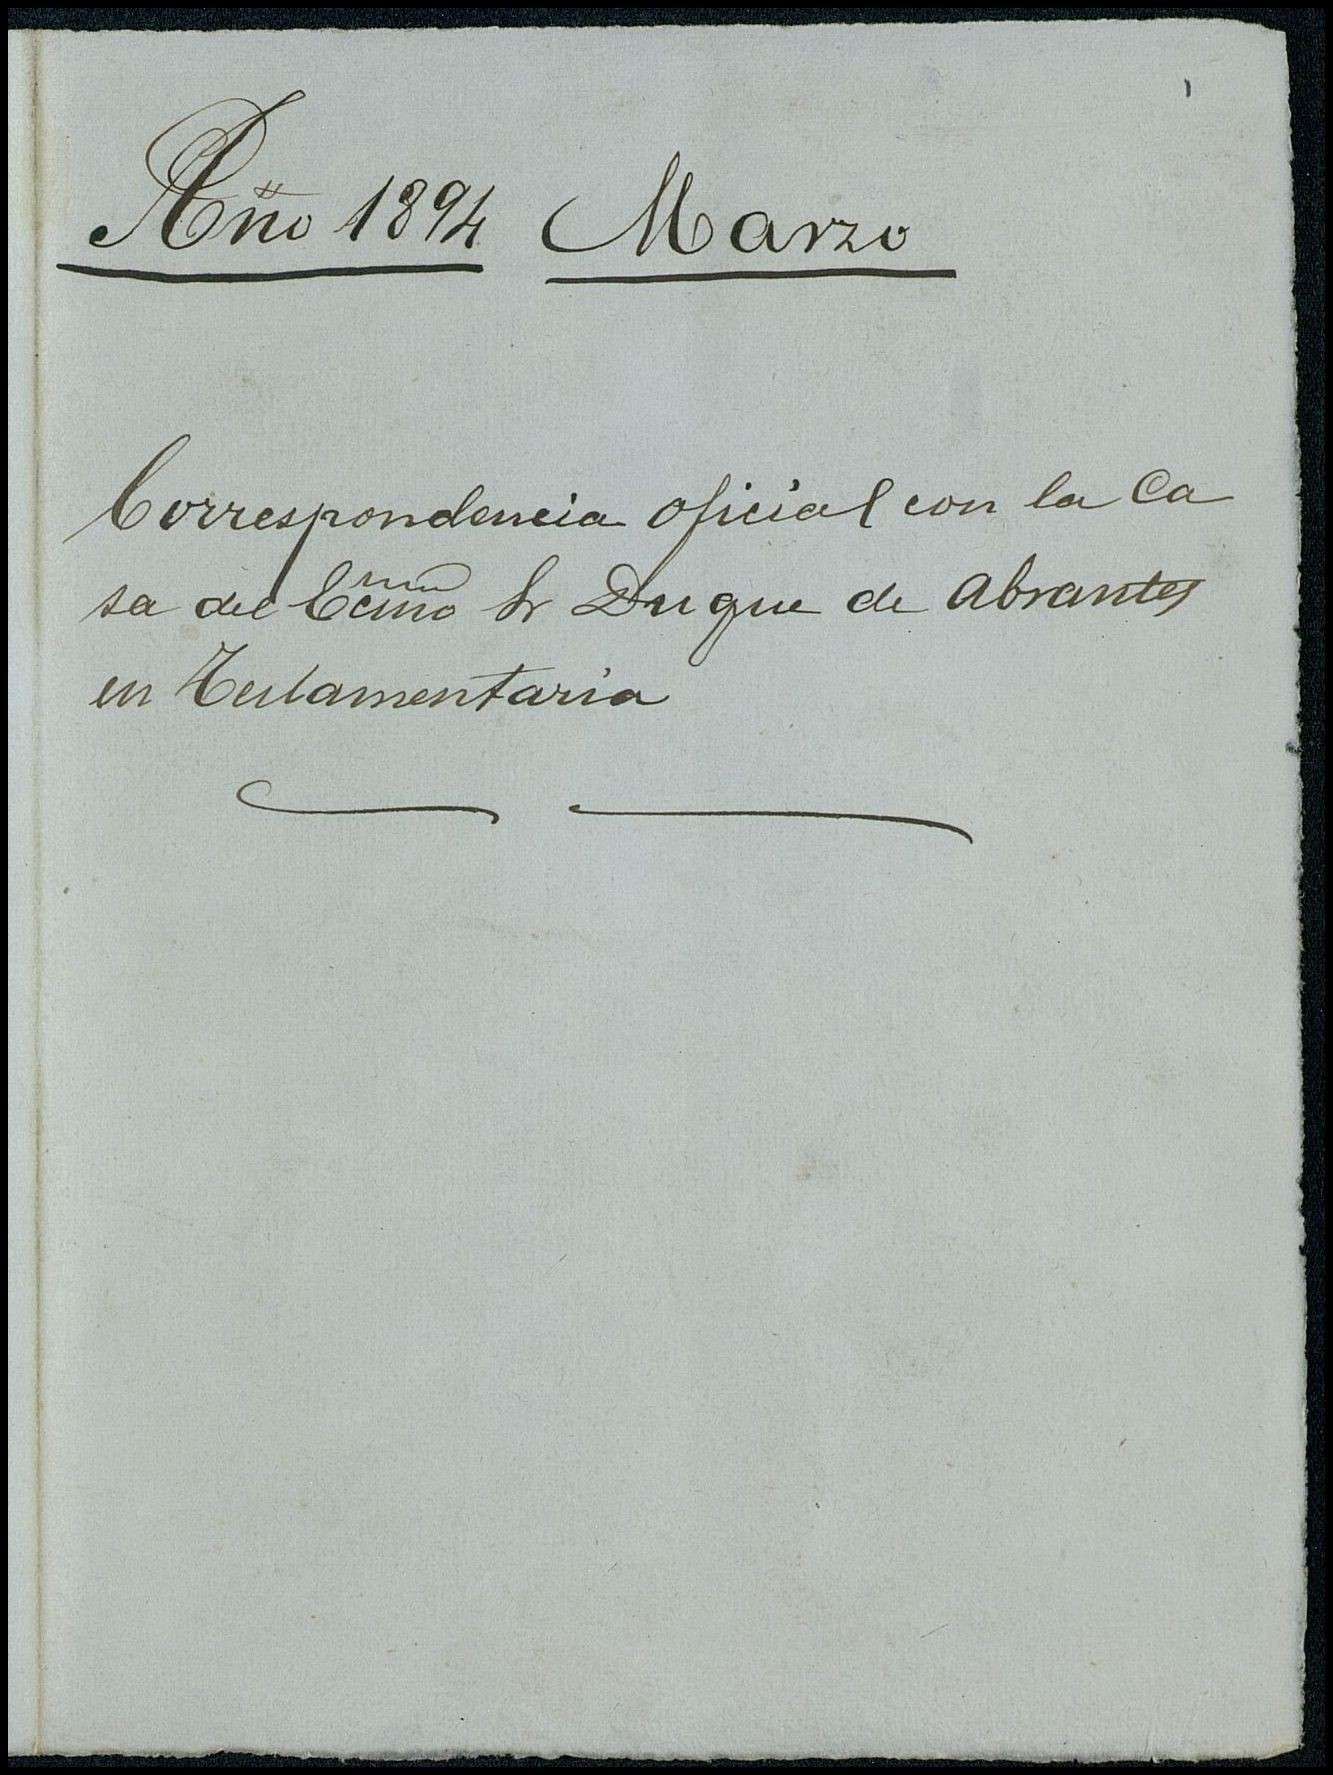 Año 1894 Marzo
Correspondencia oficial con la Ca
sa del Ecmo Sr Duque de Abrantes
en Testamentaria